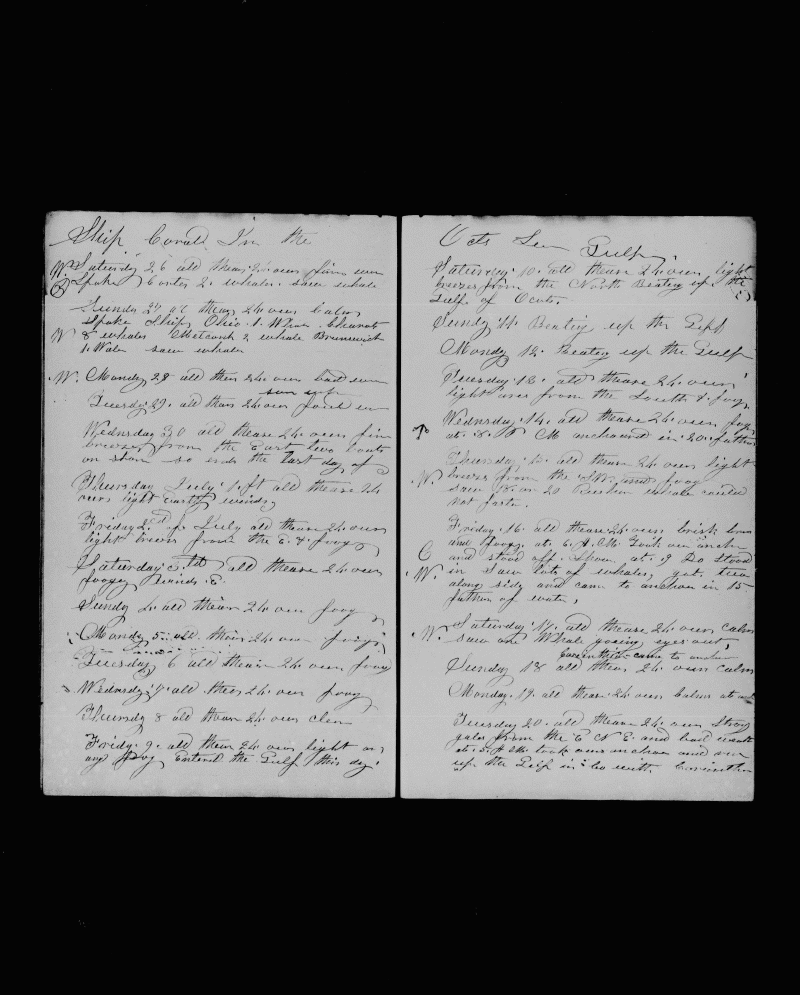 Ship Coral In the
W Saturday 26 all these 24 ours fine
Spoke 2 whales saw whale
Sunday 27 all these 24 ours Calm
Spoke Ship Ohio 1 Whale
W 8 whales 2 whale Brunswick
1 Wale saw whales
W. Monday 28 all thes 24 ours bad
Tuesday 29. all thes 24 ours
Wednsday 30 all thease 24 ours fine
breeses from the East two boats
on so ends the last day of
Thursday July 1st all thease 24
ours light winds
Friday 2nd of July all thease 24 ours
light breeses from the E. & foogy
Saturday all thease 24 ours
foogey Winds E.
Sundy 4 all thease 24 ours foogy
Mondy 5 all these 24 ours foogy
Tuesday 6 all these 24 ours foogy
Wednsdy 7 all thes 24 ours foogy
Thursdy 8 all thease 24 ours clear
Fridy 9. all these 24 ours light
and Foog Entered the Gulf this day.
Octs Sea Gulf
Saturday 10. all thease 24 ours light
breeses from the North Beating up the
Gulf of Octs.
Sundy 11. Beating up the Gulf
Mondy 12. Beating up the Gulf
Tuesday 13. all thease 24 ours
light ares from the South & foogy
Wednsday 14. all thease 24 ours foogy
at 8 P M anchoured in 20 fathom
Thursday 15 all these 24 ours light
W. breeses from the foogy
saw 18 or 20 whale could
not fasten.
Friday 16 all thease 24 ours brisk
and foogy. at 6. A. M. Took our anchor
C and stood off Shore at 9 Do stood
W. in saw lots of whales, got two
along side and came to anchor in 15
fathom of water,
W. Saturday 17. all thease 24 ours calm
saw one Whale going eyes out,
came to anchor
Sunday 18 all thes 24 ours calm
Monday. 19. all thease 24 ours Calm at
Tuesday 20. all thease 24 ours strong
gales from the E N E. and bad weather
at 5. A M. took our anchor and run
up the Gulf in Co with